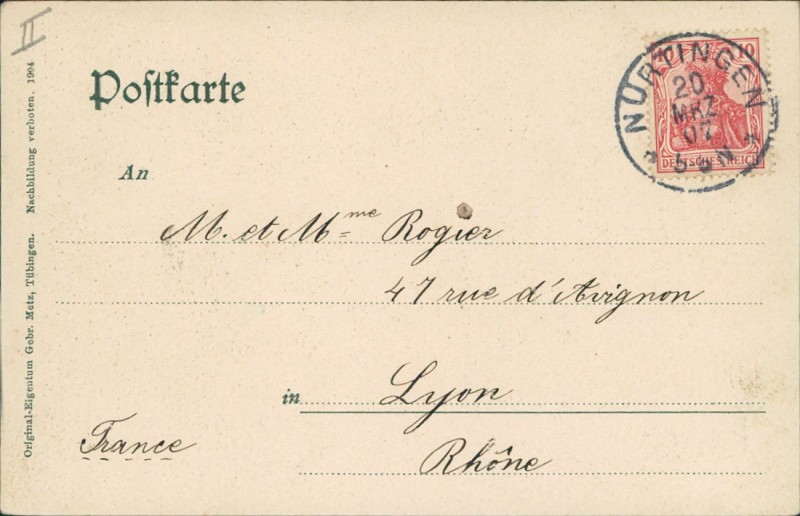 II
Postkarte
10
NÜRTINGEN
20
MRZ
07
5-6 N
DEUTSCHES REICH
An
M. et Mme Rogier
47 rue d'Avignon
in Lyon
France
Rhône
Original-Eigentum Gebr. Metz, Tübingen. Nachbildung verboten. 1904